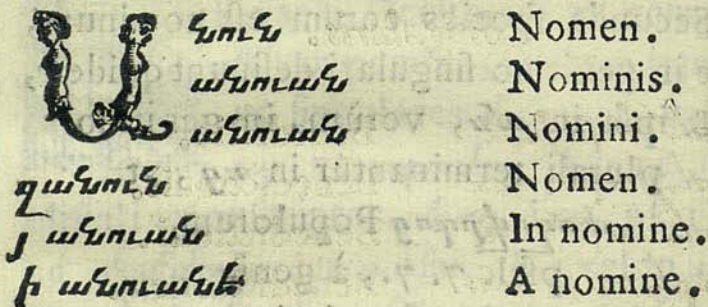 Անուն Nomen.
անուան Nominis.
անուան Nomini.
զանուն Nomen.
յ անուան In nomine.
ի անուանէ A nomine.